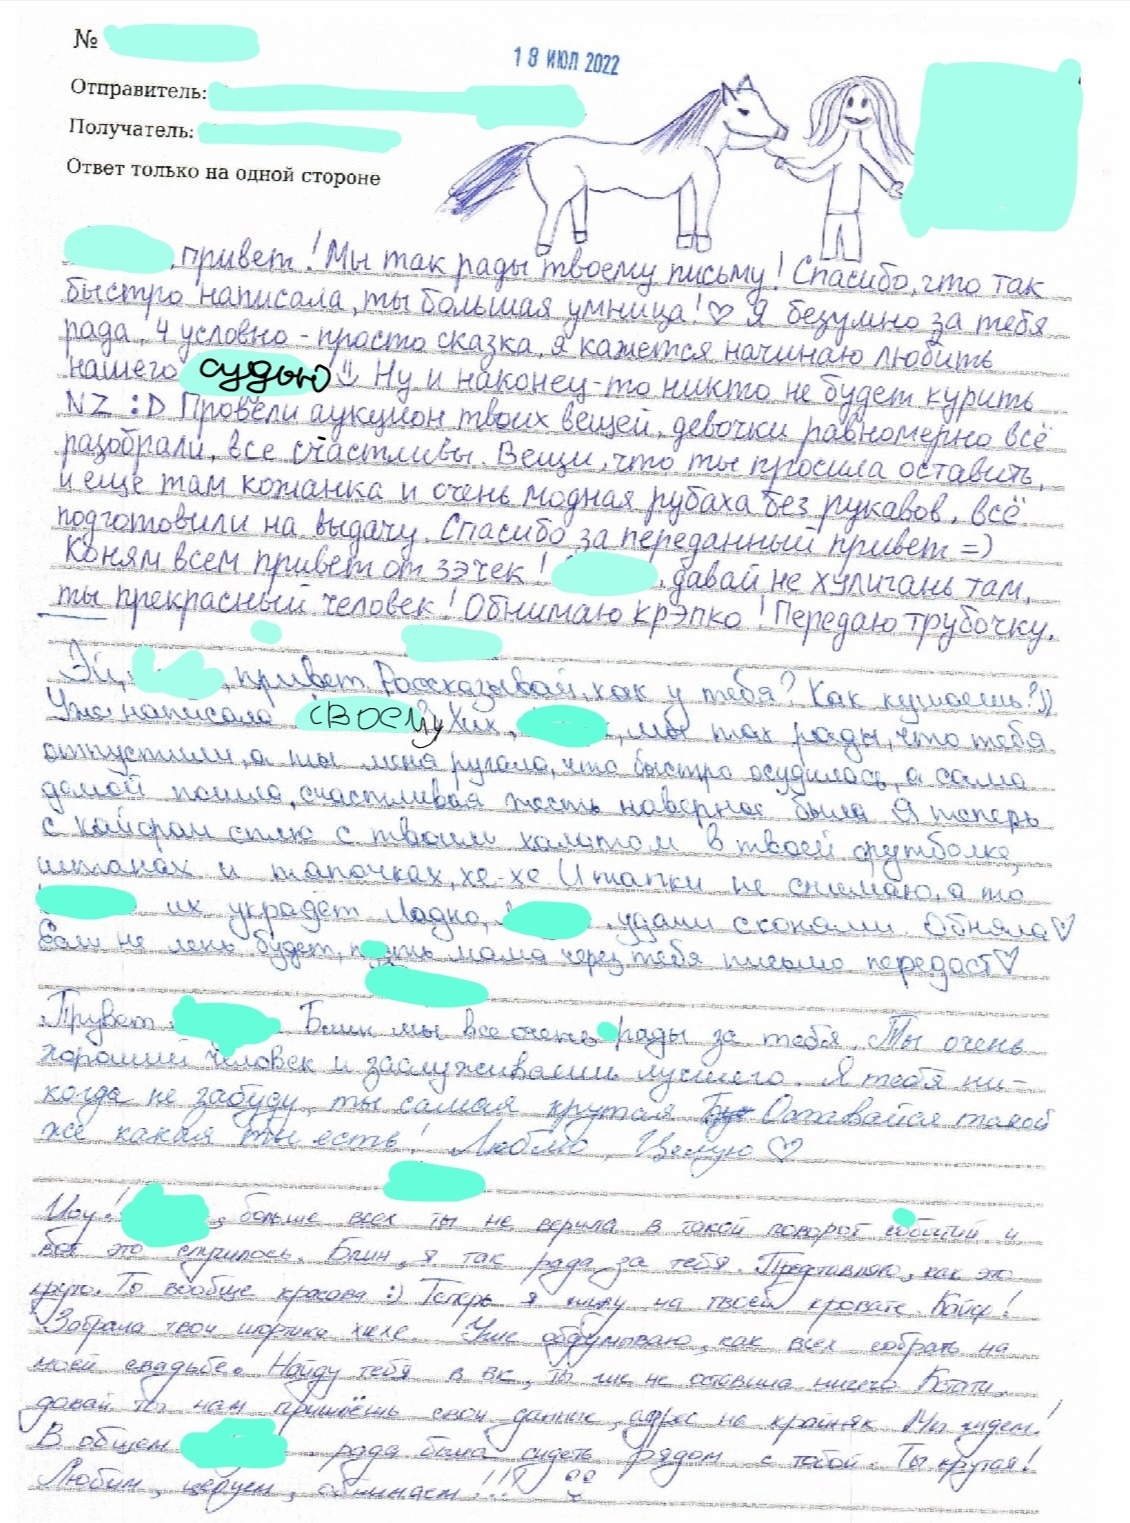 №
18 ИЮЛ 2022
Отправитель:
Получатель:
Ответ только на одной стороне
, привет! Мы так рады твоему письму! Спасибо, что так
быстро написала, ты большая умница!♡ Я безумно за тебя
рада, 4 условно - просто сказка, я кажется начинаю любить
нашего судью Ну и наконец-то никто не будет курить
NZ :D Провели аукцион твоих вещей, девочки равномерно всё
разобрали, все счастливы. Вещи, что ты просила оставить,
и ещё там кожанка и очень модная рубаха без рукавов, всё
подготовили на выдачу. Спасибо за переданный привет =)
Коням всем привет от зэчек! , давай не хулигань там,
ты прекрасный человек! Обнимаю крэпко! Передаю трубочку.
Эй, , привет. Рассказывай, как у тебя? Как кушаешь?))
Уже написала своему Хих, , мы так рады, что тебя
отпустили, а ты меня ругала, что быстро осудилась, а сама
домой пошла, счастливая жесть наверное была. Я теперь
с кайфом сплю с твоим халатом в твоей футболке,
штанах и тапочках, хе-хе И тапки не снимаю, а то
их украдёт. Ладно, , удачи с конями. Обняла♡
Если не лень будет, пусть мама через тебя письмо передаст♡
Прувет Блин мы все очень рады за тебя. Ты очень
хороший человек и заслуживаешь лучшего. Я тебя ни-
когда не забуду, ты самая крутая Оставайся такой
же какая ты есть! Люблю, Целую ♡
Йоу! , больше всех ты не верила в такой поворот событий и
вот это случилось. Блин, я так рада за тебя. Представляю, как это
круто. Ты вообще красава :) Теперь я живу на твоей кровате. Кайф!
Забрала твои шортики Уже обдумываю, как всех собрать на
моей свадьбе. Найду тебя в вк, ты же не оставила ничего. Кстати,
давай ты нам пришлёшь свои данные, адрес на крайняк. Мы ждем!
В общем рада была сидеть рядом с тобой. Ты крутая!
Любим, целуем, обнимаем!!!